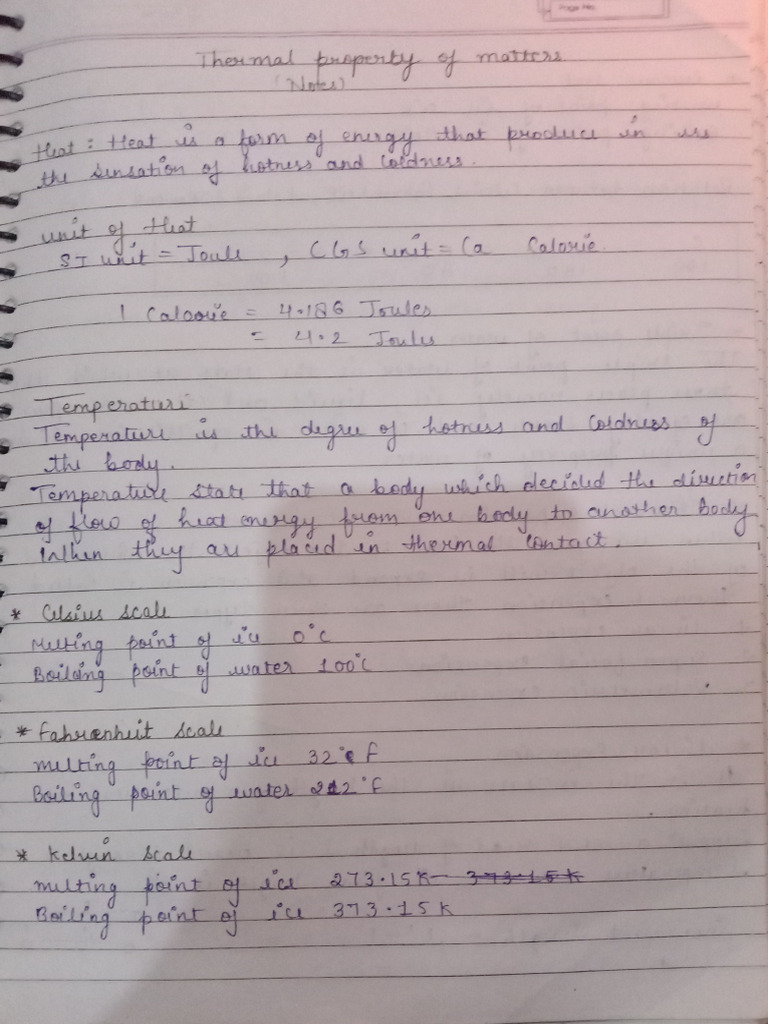 Page No.
Thermal property of matters
(Notes)
Heat : Heat is a form of energy that produce in us
the sensation of hotness and coldness.
unit of Heat
SI unit = Joule , CGS unit = Ca Calorie.
1 Calorie = 4.186 Joules
= 4.2 Joules
Temperature
Temperature is the degree of hotness and coldness of
the body.
Temperature state that a body which decided the direction
of flow of heat energy from one body to another body
When they are placed in thermal contact.
* Celsius scale
Melting point of ice 0°C
Boilding point of water 100°C
* Fahrenheit scale
melting point of ice 32°F
Boiling point of water 212°F
* Kelvin scale
melting point of ice 273.15K 373.15K
Boiling point of ice 373.15K